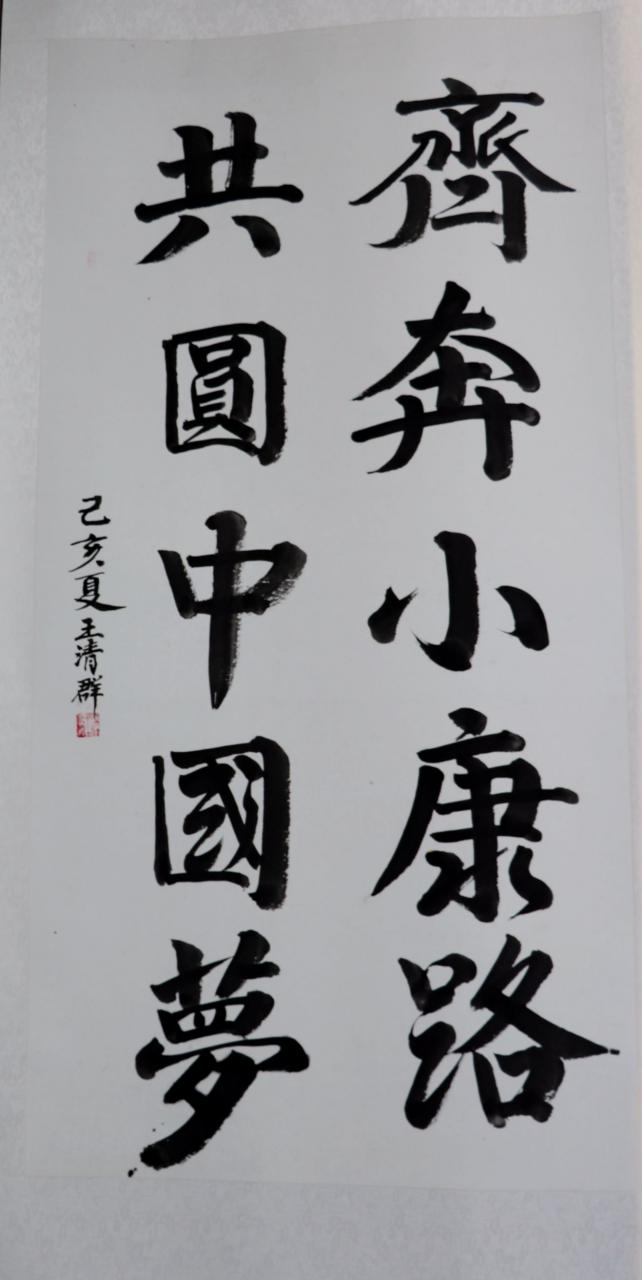 齊奔小康路
共圓中國夢
己亥夏王清群